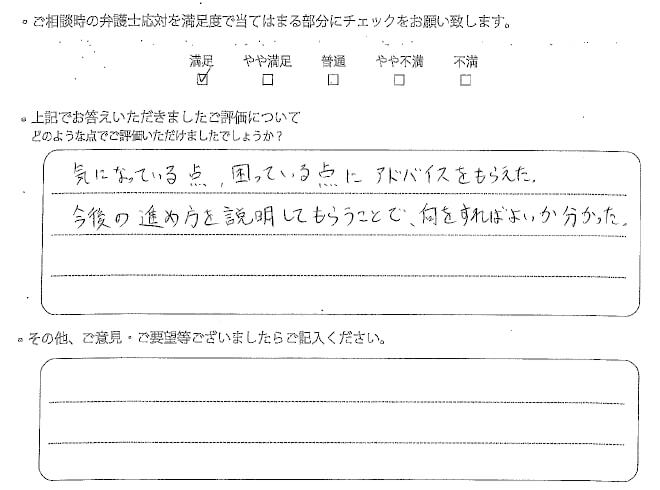 。ご相談時の弁護士応対を満足度で当てはまる部分にチェックをお願い致します。
満足 やや満足 普通 やや不満 不満
☑ □ □ □ □
。上記でお答えいただきましたご評価について
どのような点でご評価いただけましたでしょうか?
気になっている点、困っている点に アドバイスをもらえた。
今後の進め方を説明してもらうことで、何をすればよいか分かった。
。その他、ご意見・ご要望等ございましたらご記入ください。